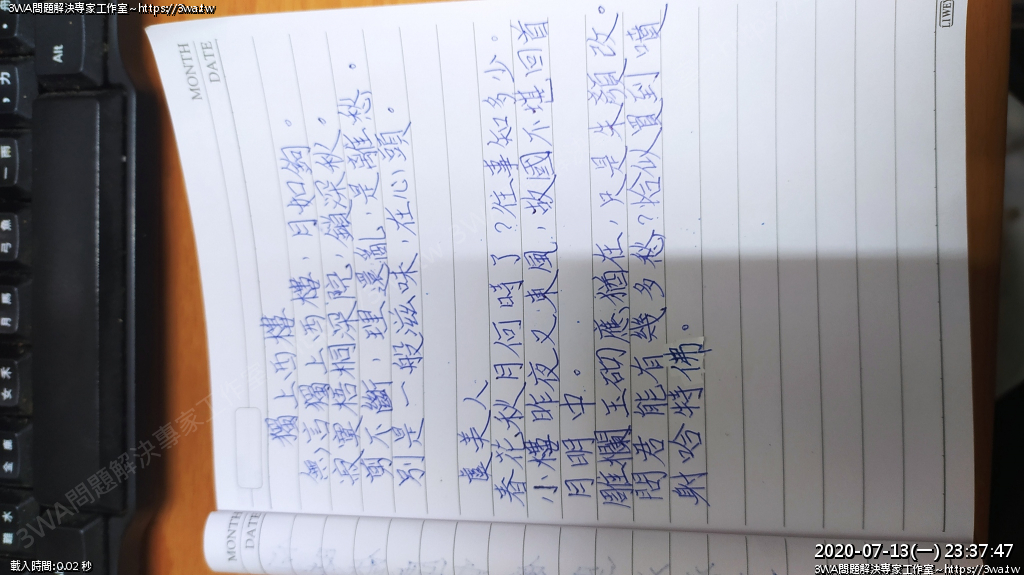 3WA問題解決專家工作室~https://3wa.tw
MONTH
DATE
獨上西樓
無言獨上西樓，月如鉤。
寂寞梧桐深院，鎖深秋。
剪不斷，理還亂，是離愁。
別是一般滋味，在心頭。
虞美人
春花秋月何時了？往事知多少。
小樓昨夜又東風，故國不堪回首
月明中。
雕欄玉砌應猶在，只是朱顏改。
問君能有幾多愁？恰似買到噴
射哈特佛。
MONTH
DATE
Alt
3WA問題解決專家工作室
載入時間:0.02 秒
2020-07-13(一) 23:37:47
3WA問題解決專家工作室~https://3wa.tw